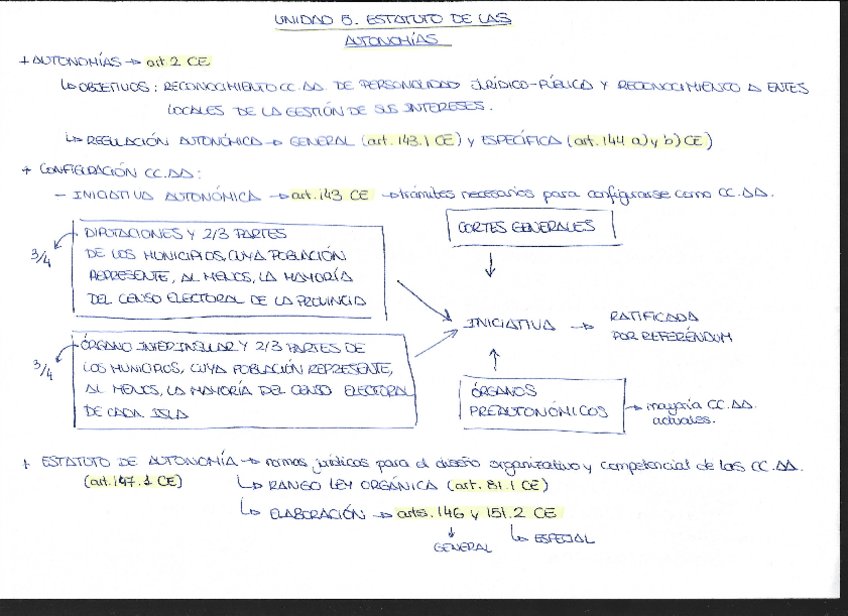 UNIDAD 5. ESTATUTO DE LAS
AUTONOMÍAS
+ AUTONOMÍAS → art 2 CE
↳ OBJETIVOS: RECONOCIMIENTO CC.AA. DE PERSONALIDAD JURÍDICO-PÚBLICA Y RECONOCIMIENTO A ENTES
LOCALES DE LA GESTIÓN DE SUS INTERESES.
↳ REGULACIÓN AUTONÓMICA → GENERAL (art. 143.1 CE) y ESPECÍFICA (art. 144 a) y b) CE)
+ CONFIGURACIÓN CC.AA:
- INICIATIVA AUTONÓMICA → art. 143 CE → trámites necesarios para configurarse como CC.AA.
3/4
DIPUTACIONES Y 2/3 PARTES
DE LOS MUNICIPIOS, CUYA POBLACIÓN
REPRESENTE, AL MENOS, LA MAYORÍA
DEL CENSO ELECTORAL DE LA PROVINCIA
CORTES GENERALES
INICIATIVA → RATIFICADA
POR REFERÉNDUM
3/4
ÓRGANO INTERINSULAR Y 2/3 PARTES DE
LOS MUNICIPIOS, CUYA POBLACIÓN REPRESENTE,
AL MENOS, LA MAYORÍA DEL CENSO ELECTORAL
DE CADA ISLA
ÓRGANOS
PREAUTONÓMICOS → mayoría CC.AA.
actuales.
+ ESTATUTO DE AUTONOMÍA → normas jurídicas para el diseño organizativo y competencial de las CC.AA.
(art. 147.1 CE)
↳ RANGO LEY ORGÁNICA (art. 81.1 CE)
↳ ELABORACIÓN → arts. 146 y 151.2 CE
↓ GENERAL
↳ ESPECIAL